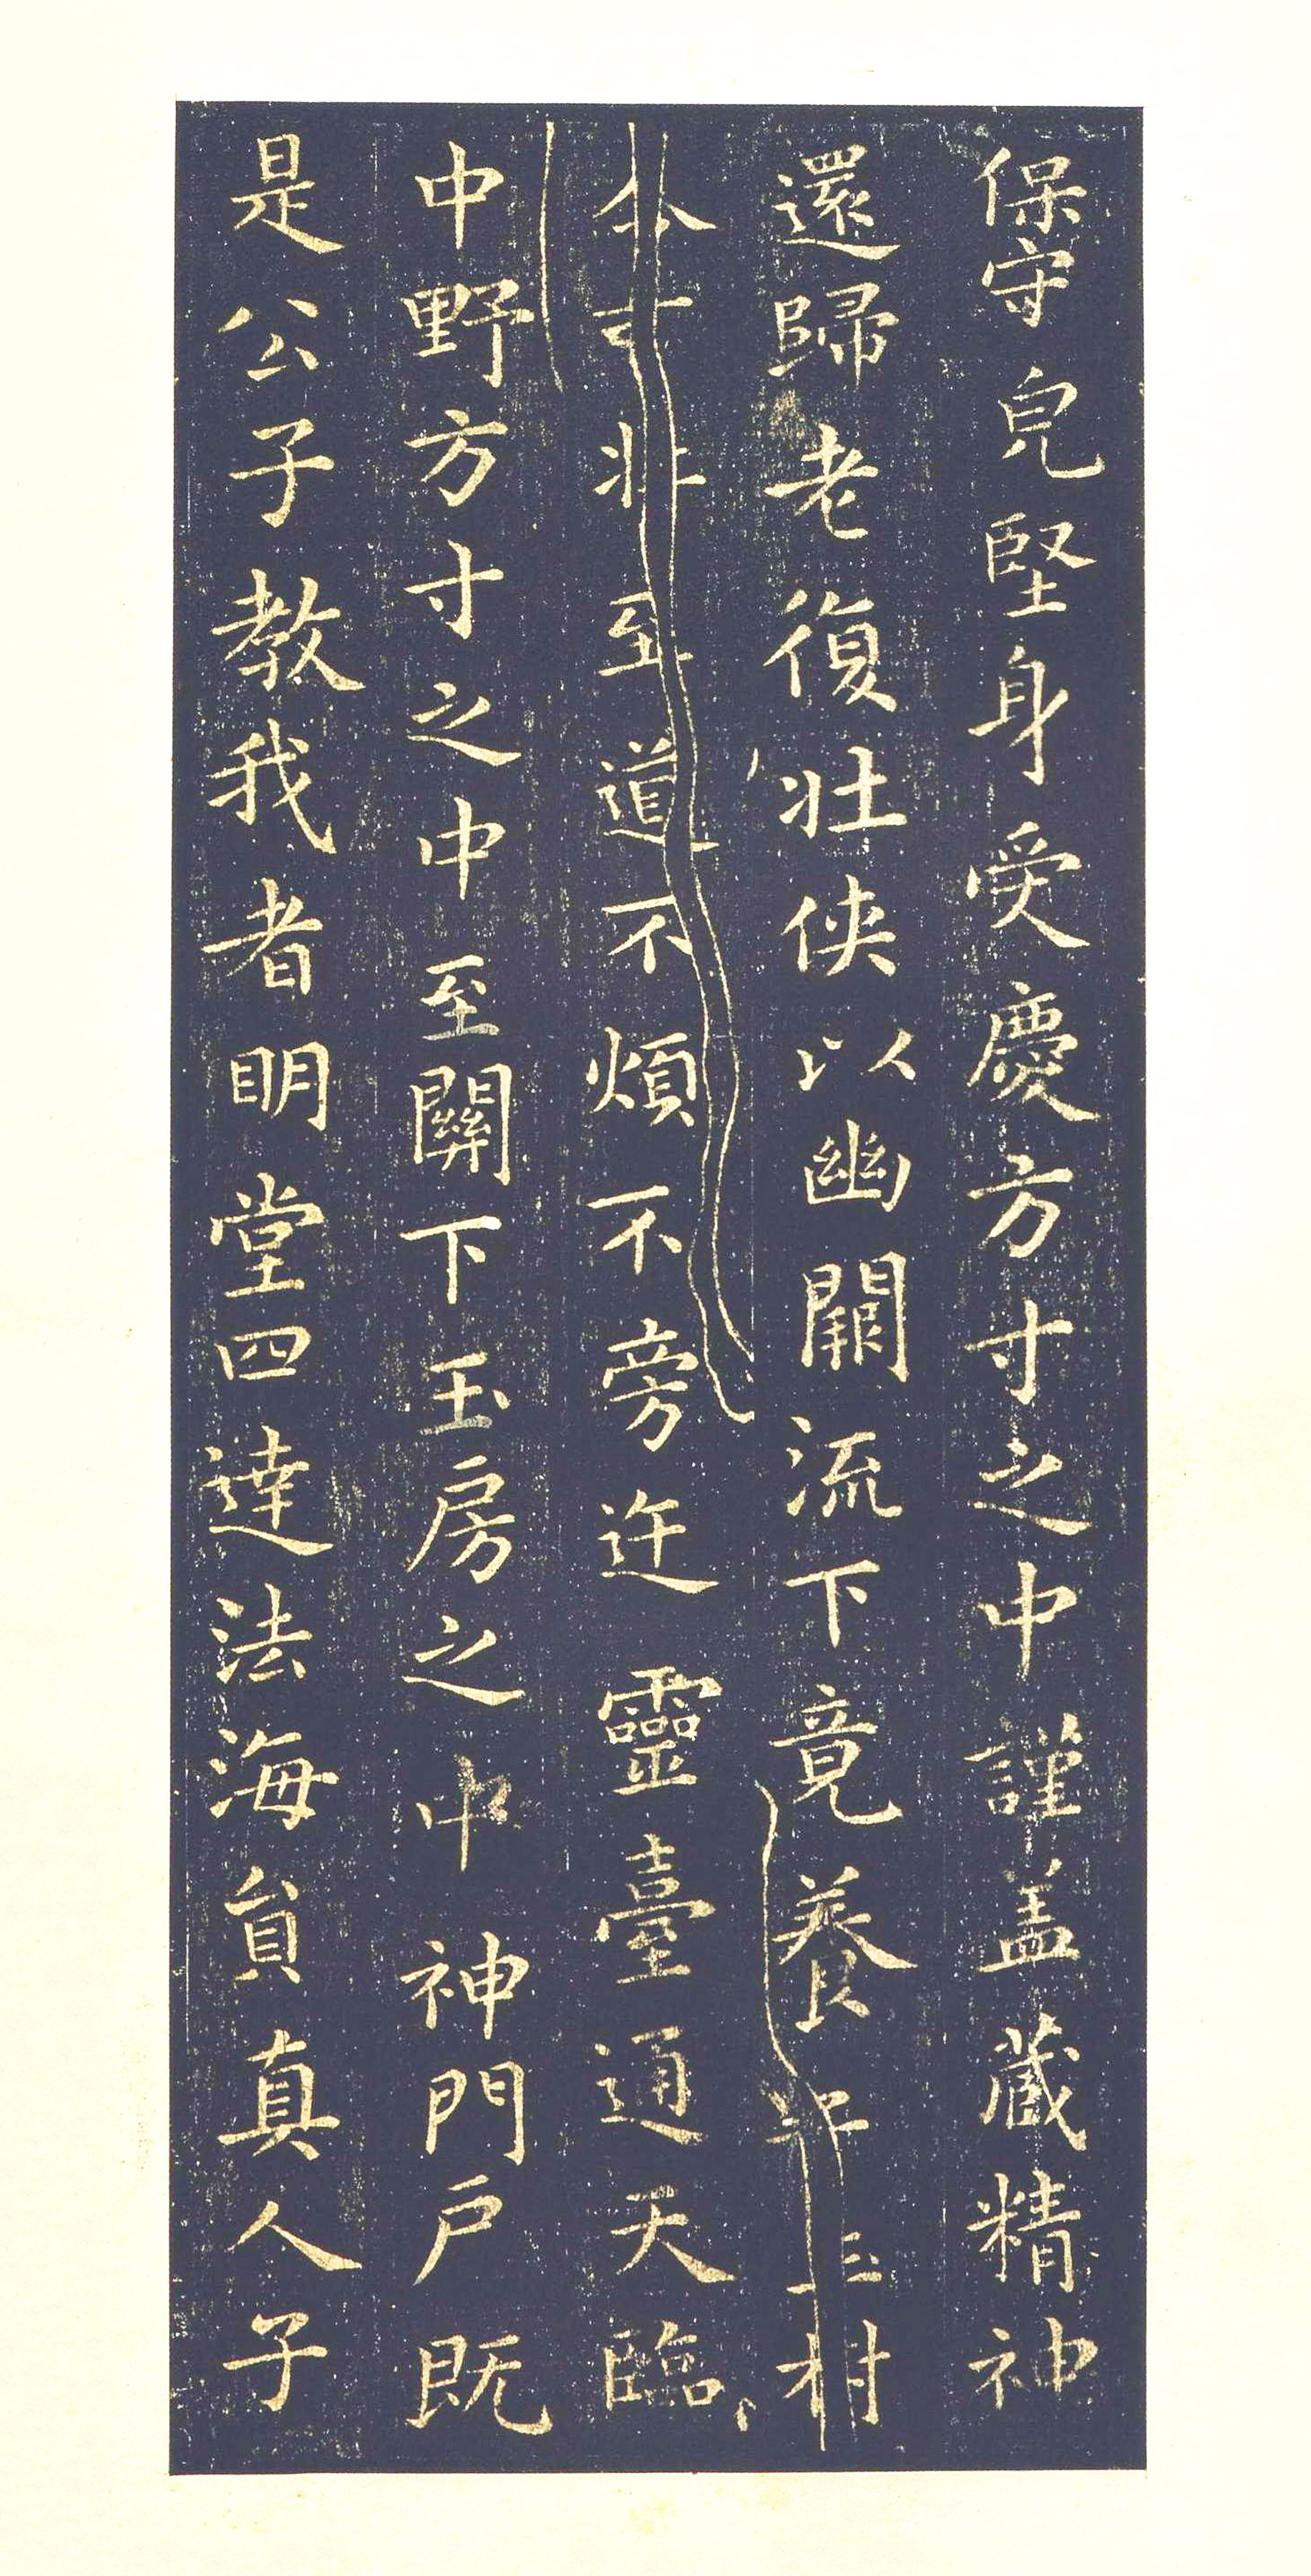 保守皃堅身受慶方寸之中謹盖蔵精神
還歸老復壯俠以幽闕流下竟養子玉樹
不可杖至道不煩不旁迕靈臺通天臨
中野方寸之中至關下玉房之中神門戶既
是公子教我者明堂四達法海貟真人子